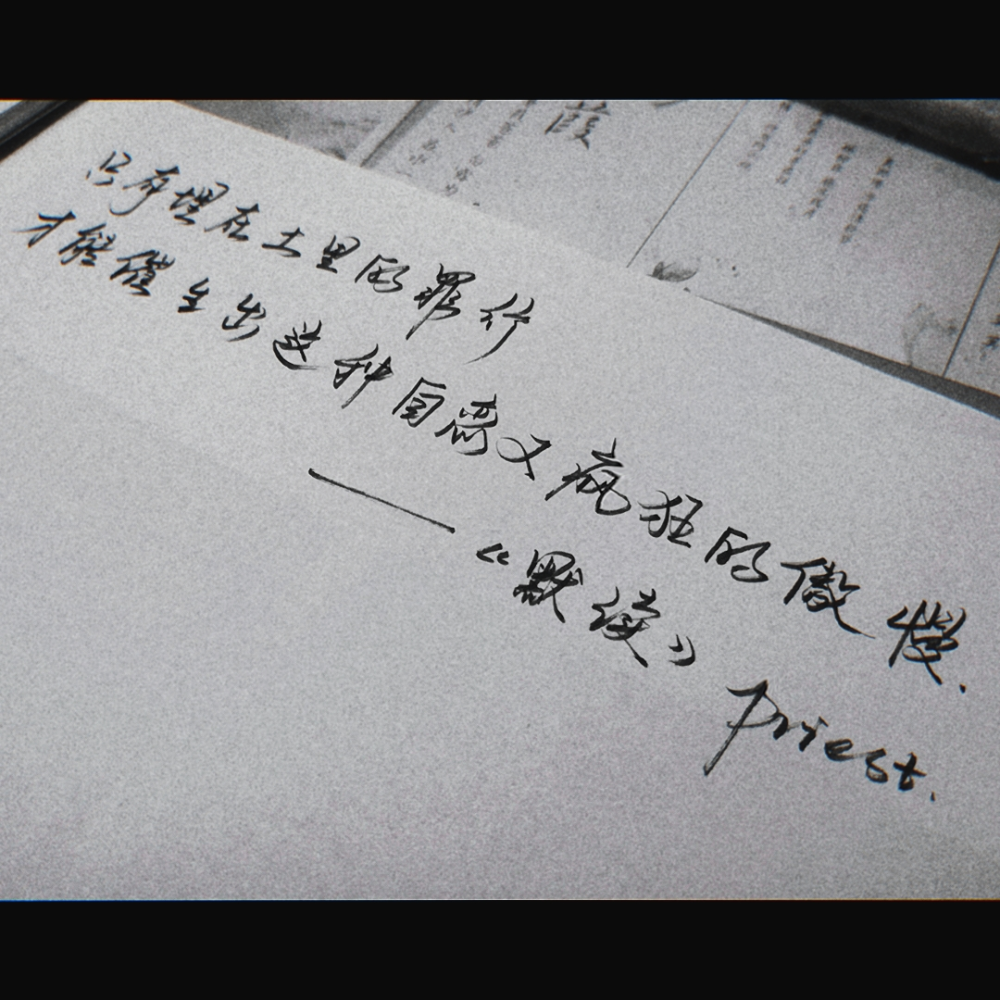 只有埋在土里的罪行
才能催生出这种自恋又疯狂的傲慢.
——《默读》
Priest.
霞